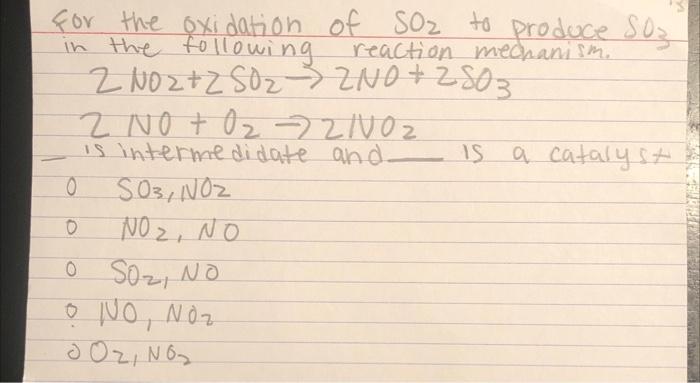 For the oxidation of SO2 to produce SO3
in the following reaction mechanism.
2 NO2+2 SO2 → 2NO + 2SO3
2 NO + O2 → 2NO2
_ is intermedidate and _ is a catalyst
o SO3, NO2
o NO2, NO
o SO2, NO
o NO, NO2
o O2, NO2